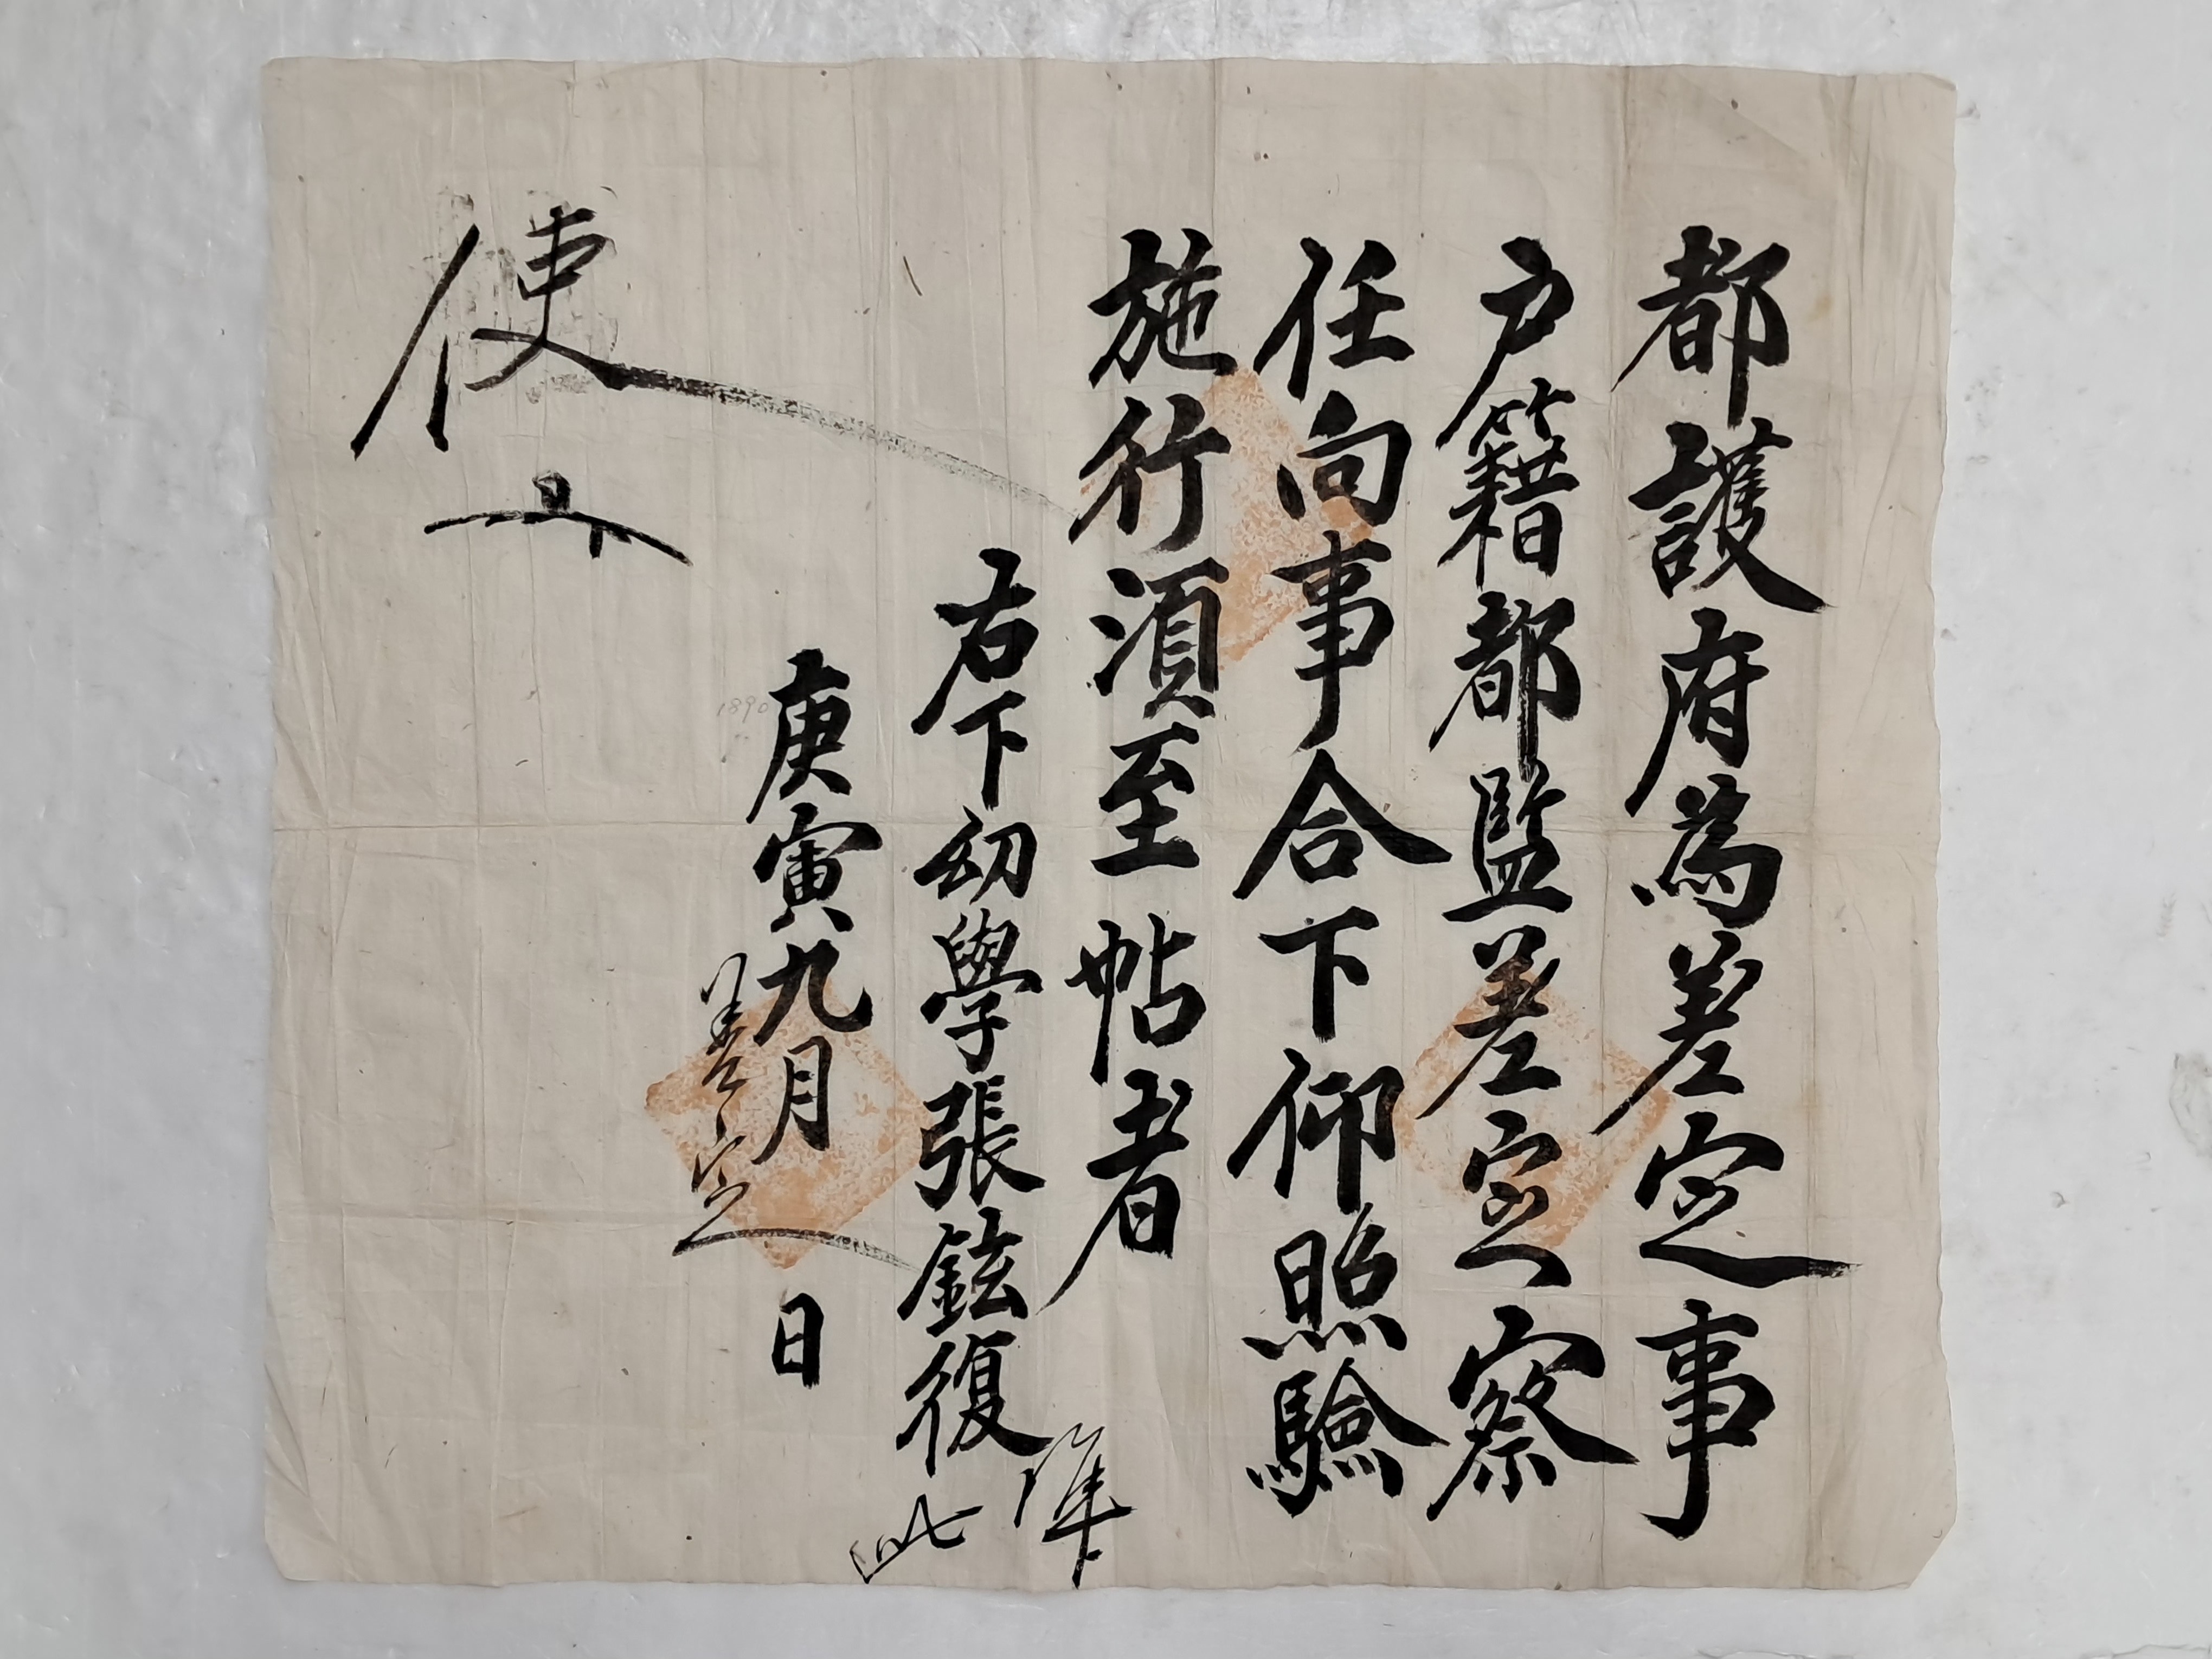 都護府爲差定事
戶籍都監差定察
任向事合下仰照驗
施行須至帖者
右下幼學張鉉復
準此
庚寅九月 日
差定
1890
使